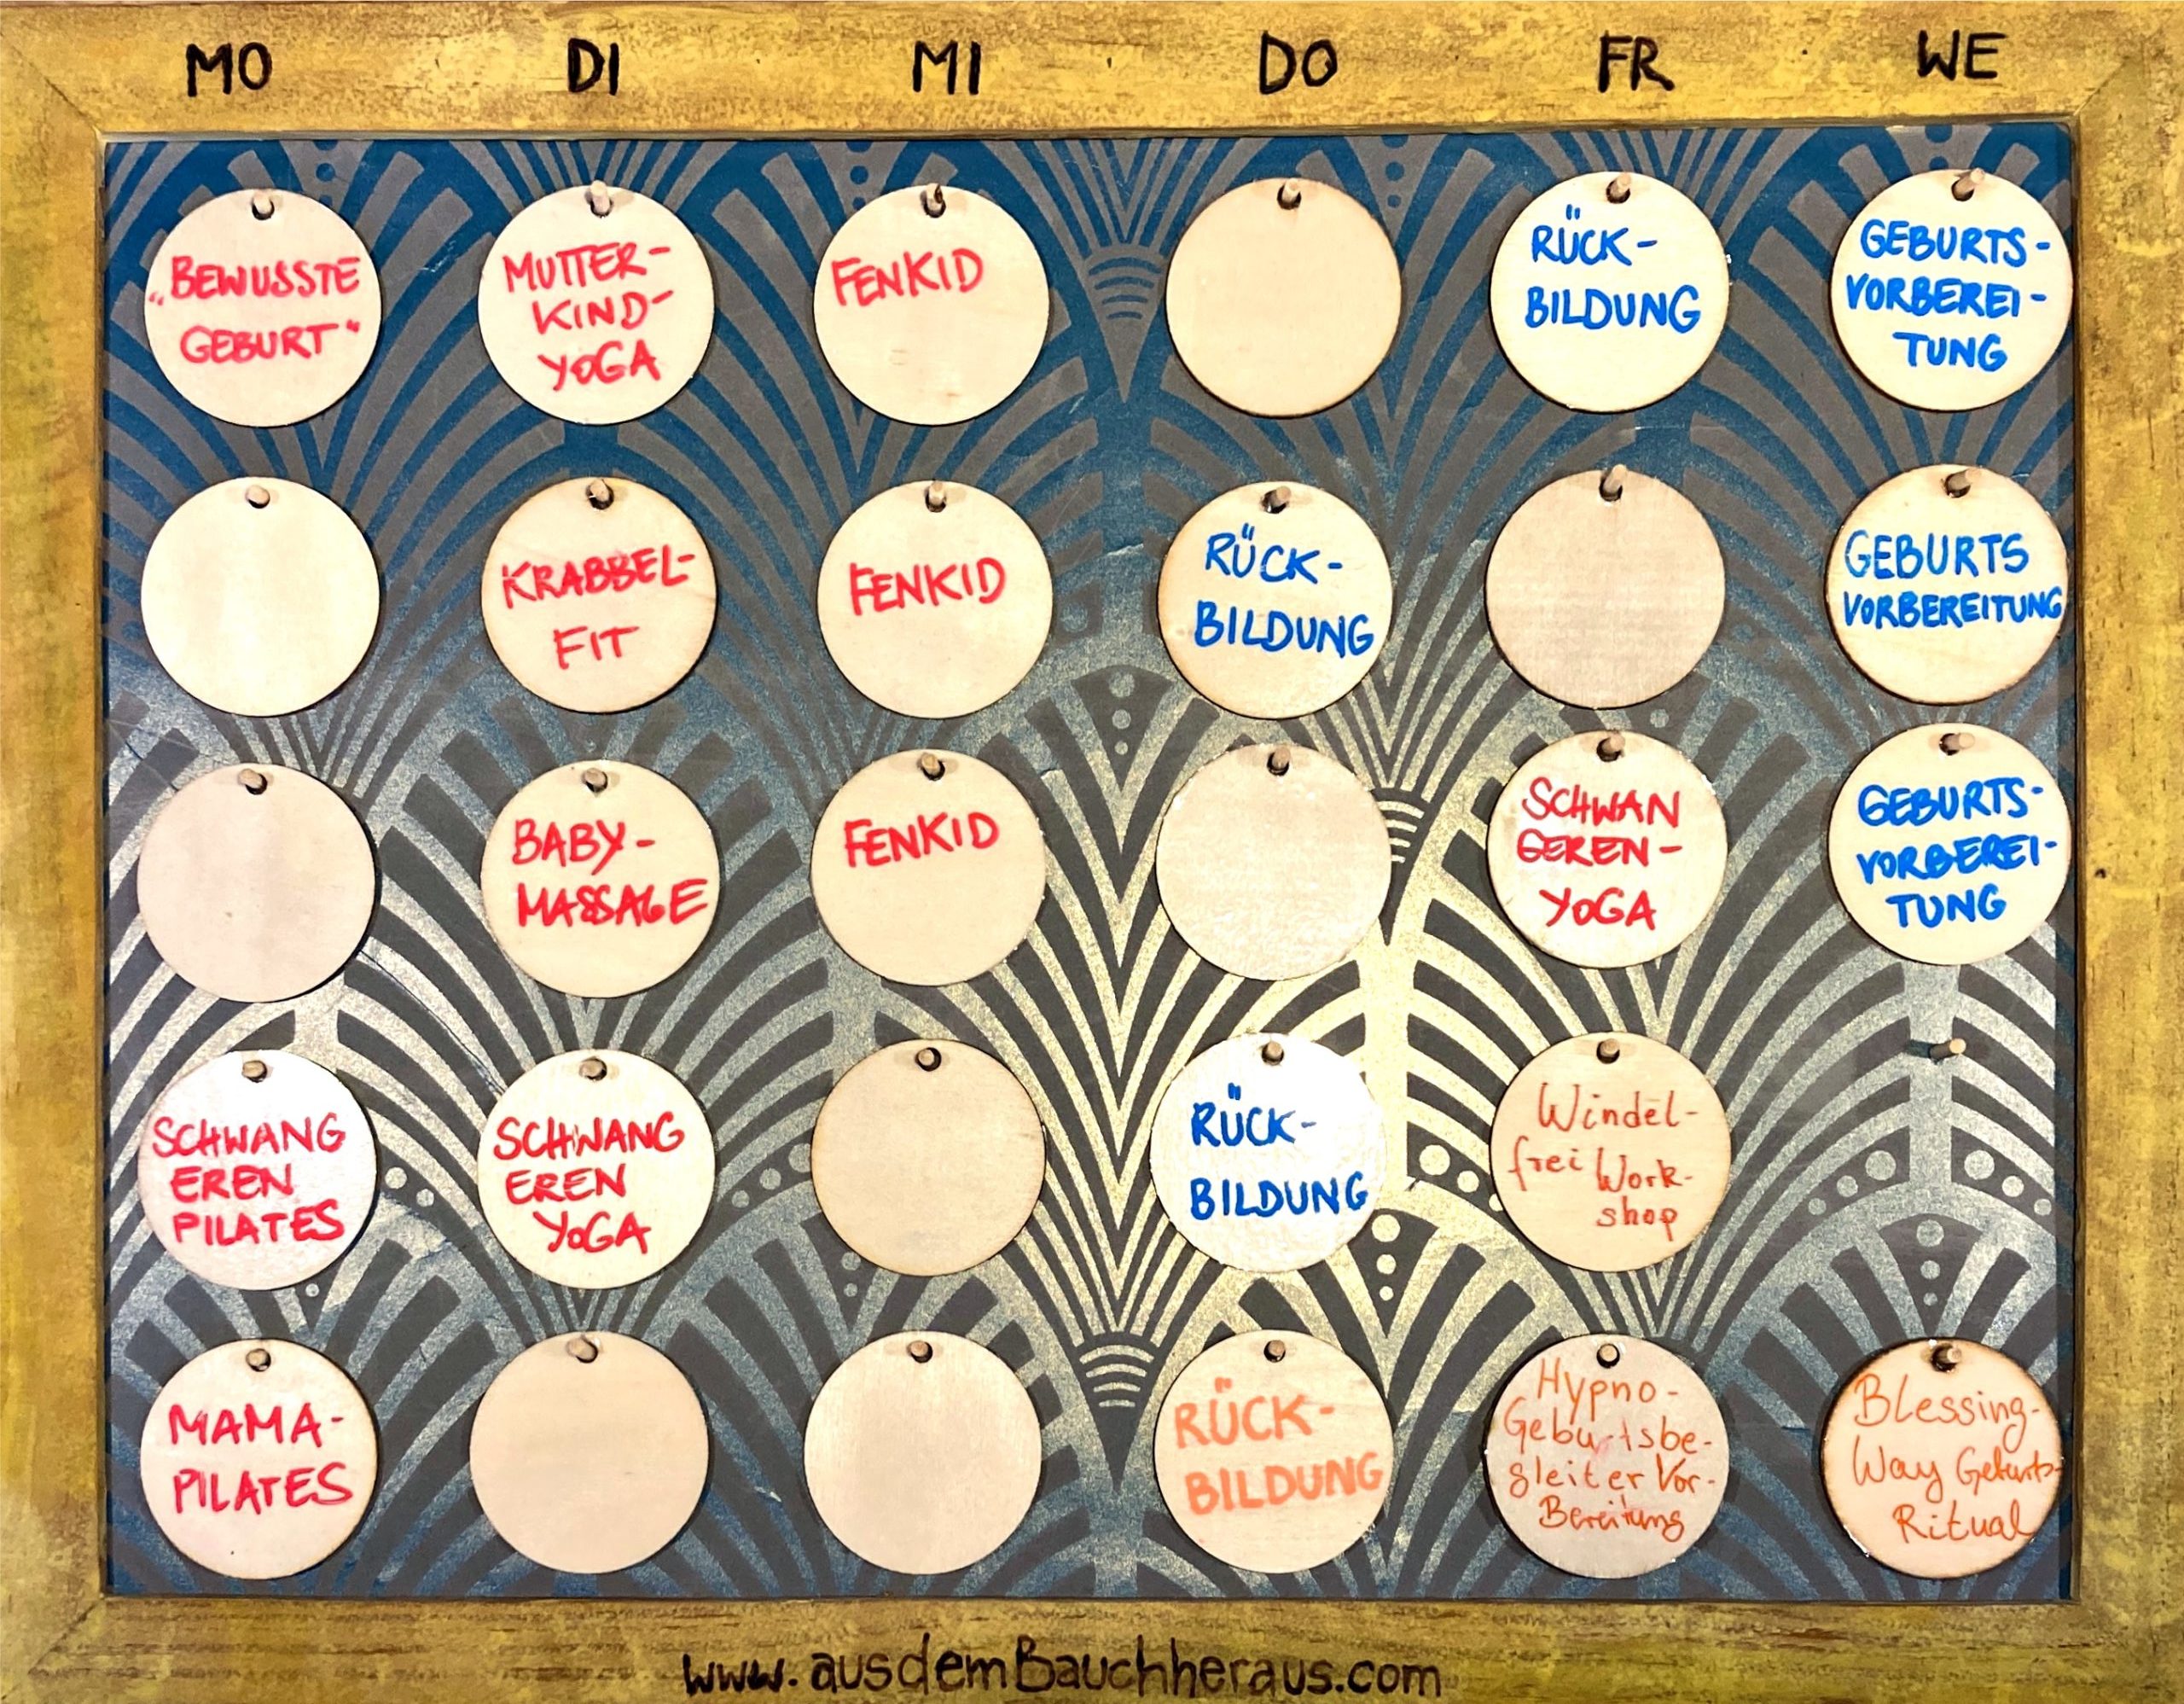 MO DI MI DO FR WE
„BEWUSSTE
GEBURT“
MUTTER-
KIND-
YOGA
FENKID
RÜCK-
BILDUNG
GEBURTS-
VORBEREI-
TUNG
KRABBEL-
FIT
FENKID
RÜCK-
BILDUNG
GEBURTS
VORBEREITUNG
BABY-
MASSAGE
FENKID
SCHWAN
GEREN-
YOGA
GEBURTS-
VORBEREI-
TUNG
SCHWANG
EREN
PILATES
SCHWANG
EREN
YOGA
RÜCK-
BILDUNG
Windel-
frei Work-
shop
MAMA-
PILATES
RÜCK-
BILDUNG
Hypno-
Geburtsbe-
gleiter Vor-
Bereitung
Blessing-
Way Geburts-
Ritual
www.ausdemBauchheraus.com